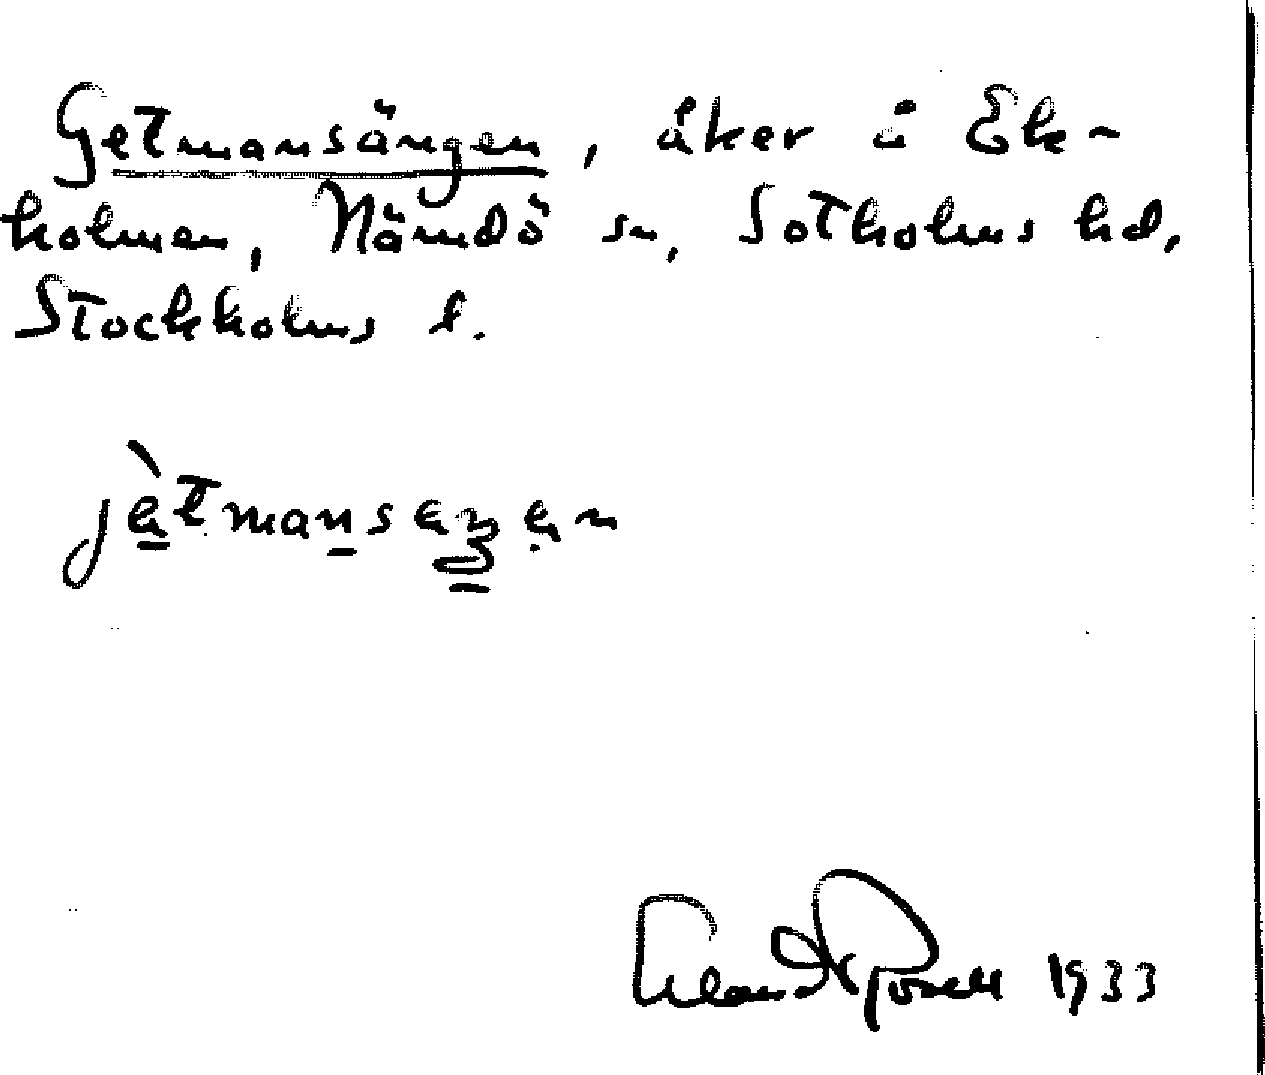 Getmansängen, åker å Ek-
holmen, Nämdö sn, Sotholms hd,
Stockholms l.
1933